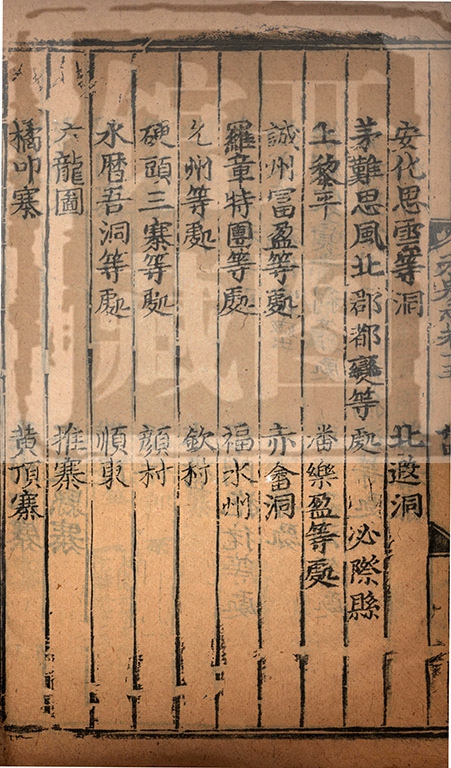 安化思雪等洞　北遐洞
茅難思風北郡都變等處　必際縣
上黎平　潘樂盈等處
誠州富盈等處　赤畬洞
羅童特團等處　福水州
允州等處　欽村
硬頭三寨等處　顔村
水曆吾洞等處　順東
六龍圖　推寨
橘叩寨　黃頂寨